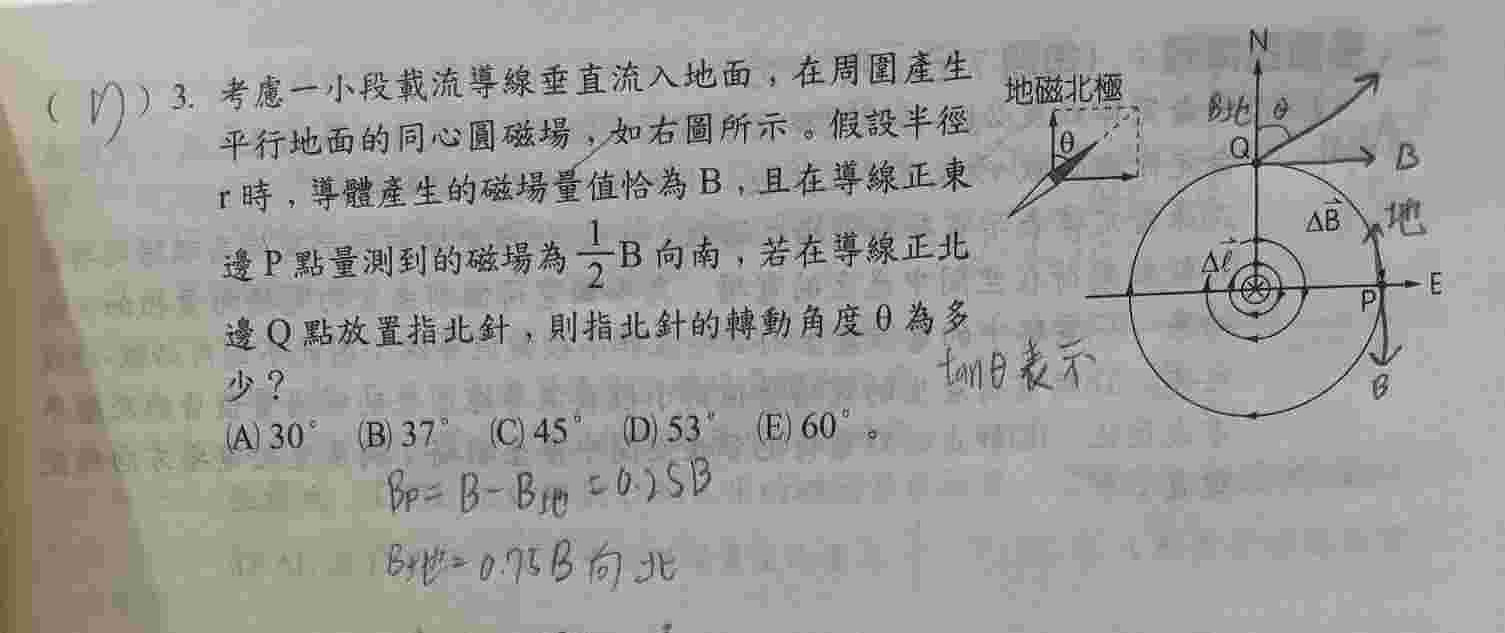 3. 考慮一小段載流導線垂直流入地面，在周圍產生
平行地面的同心圓磁場，如右圖所示。假設半徑
r 時，導體產生的磁場量值恰為 B，且在導線正東
邊 P 點量測到的磁場為 1/2 B 向南，若在導線正北
邊 Q 點放置指北針，則指北針的轉動角度 θ 為多
少？
(A) 30° (B) 37° (C) 45° (D) 53° (E) 60°。
tanθ表示
Bp = B - B地 = 0.25B
B地 = 0.75B 向北
地磁北極
θ
N
B地 θ
Q
B
ΔB⃗
地
Δℓ⃗
P
E
B